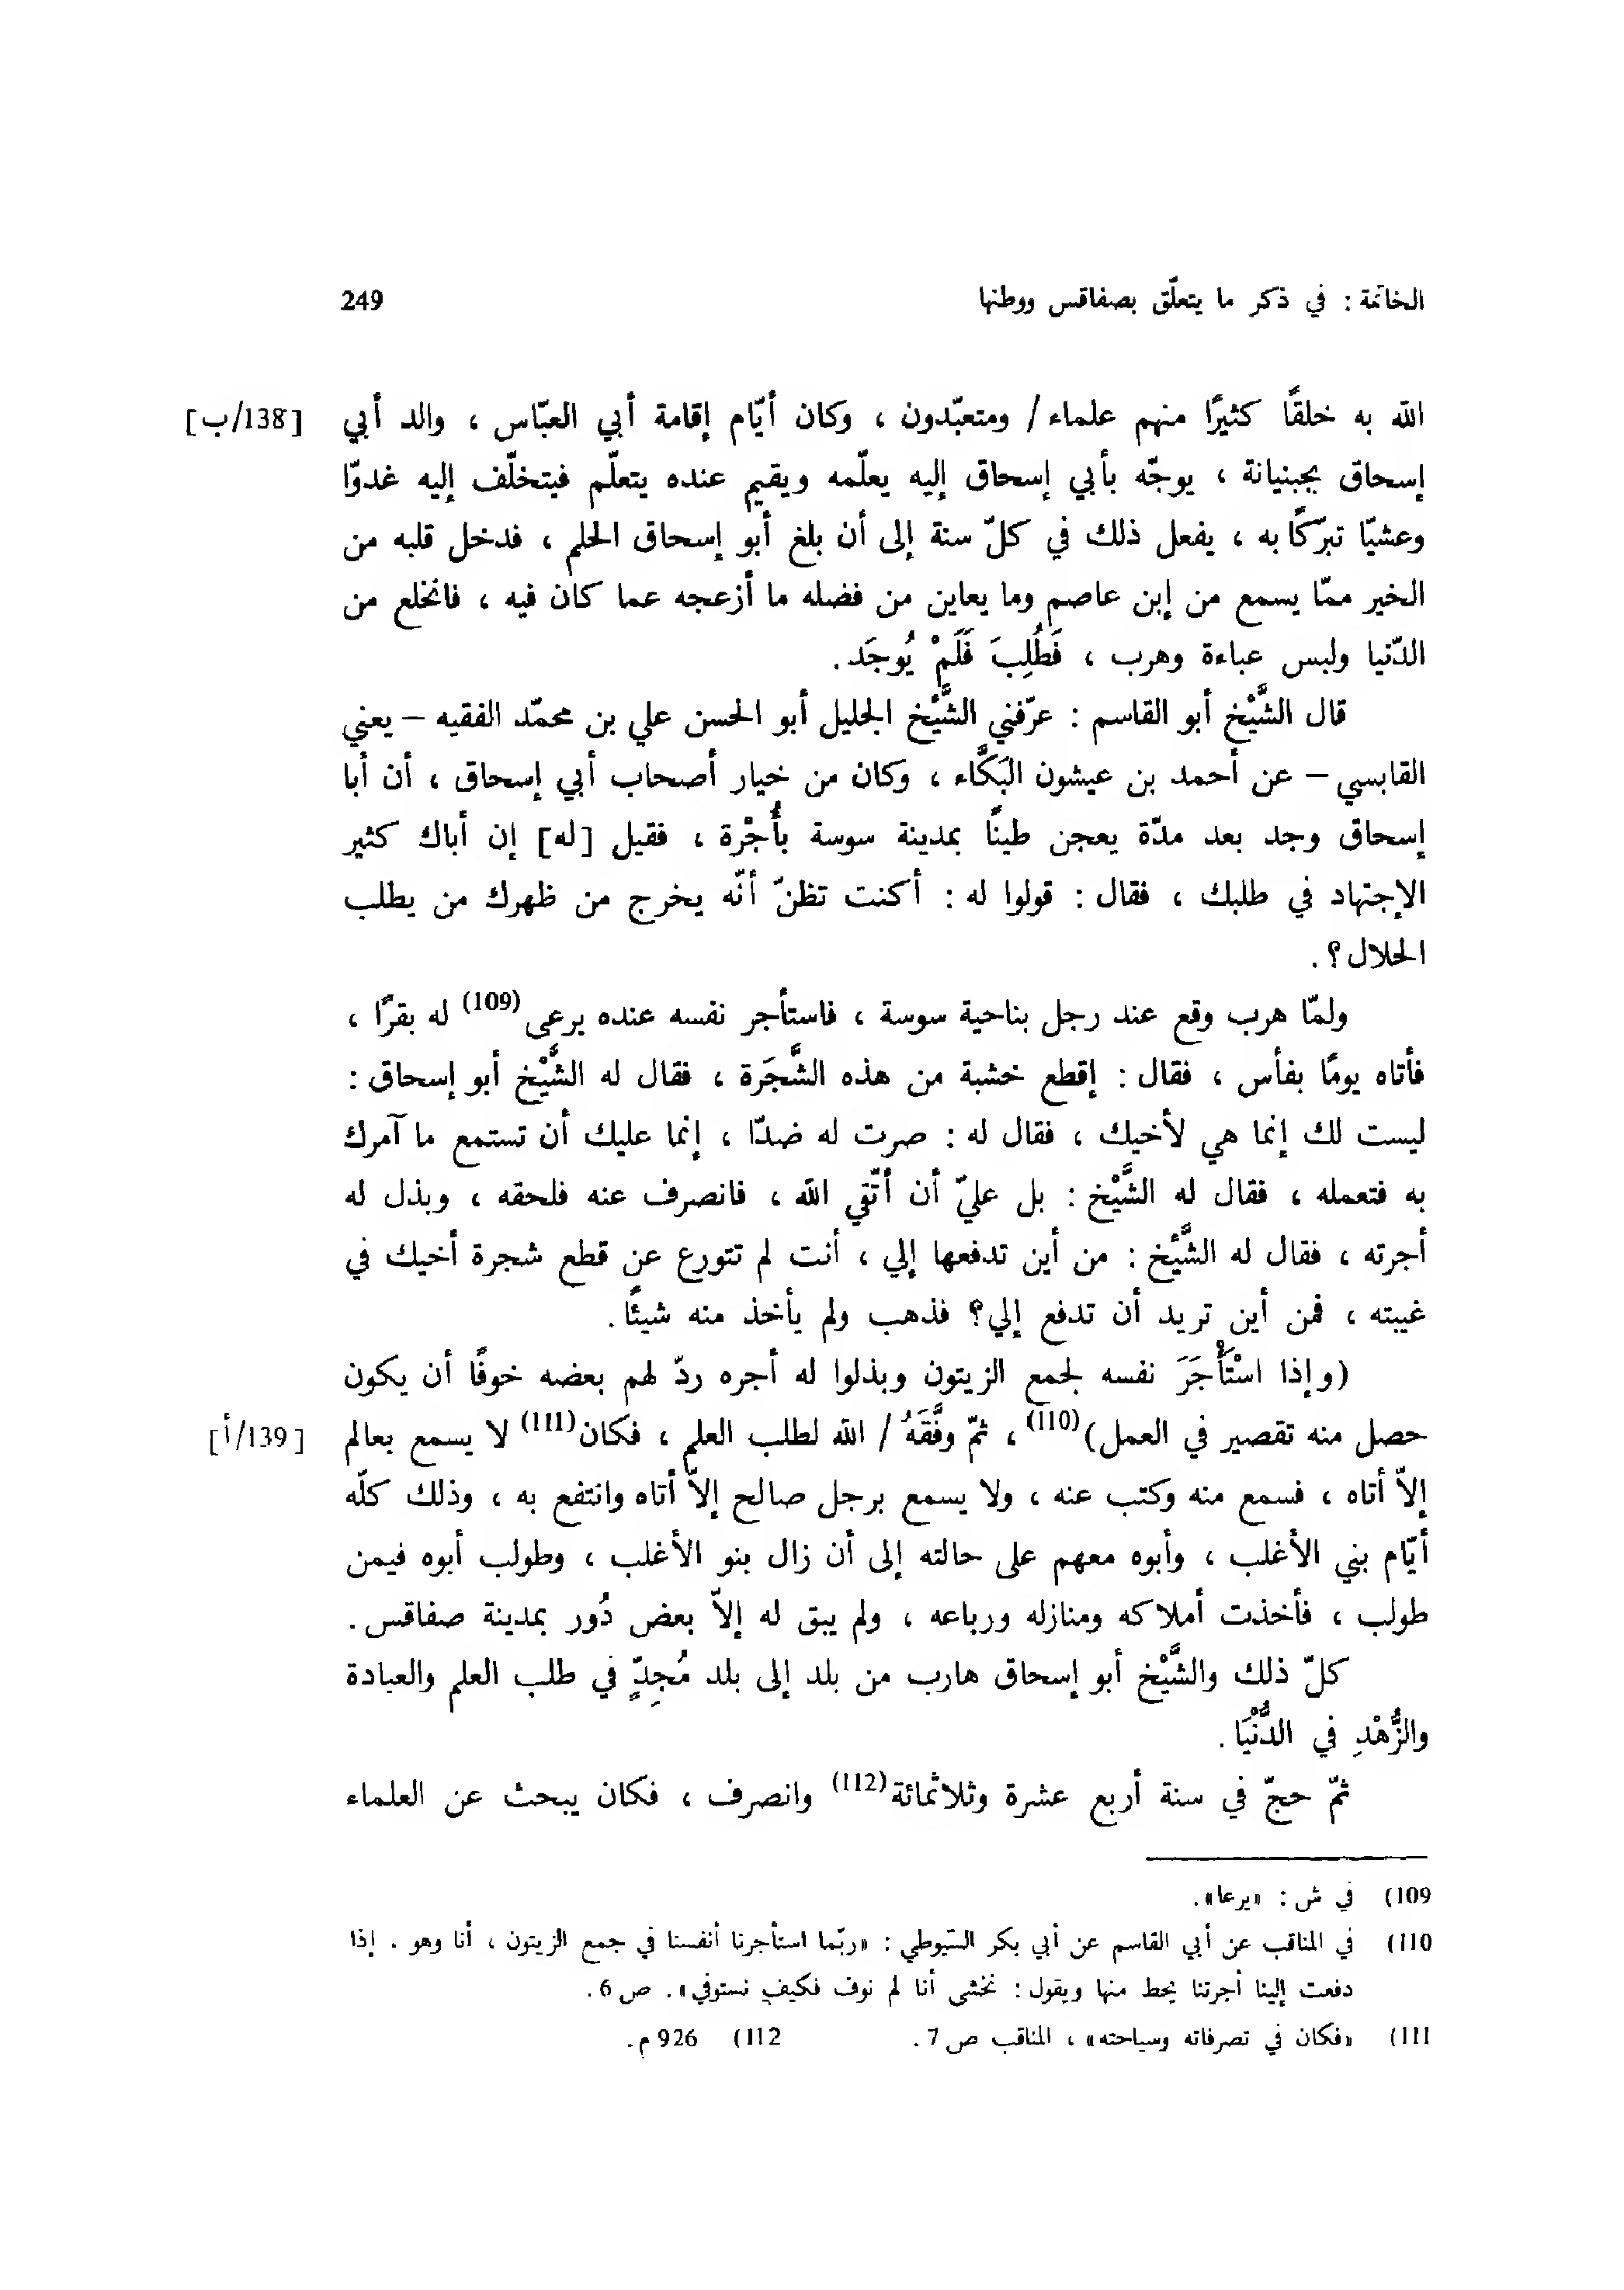 الخاتمة : في ذكر ما يتعلّق بصفاقس ووطنها 249
الله به خلقًا كثيرًا منهم علماء / ومتعبّدون ، وكان أيّام إقامة أبي العبّاس ، والد أبي [138/ب]
إسحاق بجبنيانة ، يوجّه بأبي إسحاق إليه يعلّمه ويقيم عنده يتعلّم فيتخلّف إليه غدوّا
وعشيّا تبرّكًا به ، يفعل ذلك في كلّ سنة إلى أن بلغ أبو إسحاق الحلم ، فدخل قلبه من
الخير ممّا يسمع من إبن عاصم وما يعاين من فضله ما أزعجه عما كان فيه ، فانخلع من
الدّنيا ولبس عباءة وهرب ، فَطُلِبَ فَلَمْ يُوجَد .
قال الشَّيْخ أبو القاسم : عرّفني الشَّيْخ الجليل أبو الحسن علي بن محمّد الفقيه – يعني
القابسي – عن أحمد بن عيشون البَكَّاء ، وكان من خيار أصحاب أبي إسحاق ، أن أبا
إسحاق وجد بعد مدّة يعجن طينًا بمدينة سوسة بأُجْرة ، فقيل [له] إن أباك كثير
الإجتهاد في طلبك ، فقال : قولوا له : أكنت تظنّ أنّه يخرج من ظهرك من يطلب
الحلال ؟ .
ولمّا هرب وقع عند رجل بناحية سوسة ، فاستأجر نفسه عنده يرعى (109) له بقرًا ،
فأتاه يومًا بفأس ، فقال : إقطع خشبة من هذه الشَّجَرة ، فقال له الشَّيْخ أبو إسحاق :
ليست لك إنما هي لأخيك ، فقال له : صرت له ضدّا ، إنما عليك أن تستمع ما آمرك
به فتعمله ، فقال له الشَّيْخ : بل عليّ أن أتّقي الله ، فانصرف عنه فلحقه ، وبذل له
أجرته ، فقال له الشَّيْخ : من أين تدفعها إلي ، أنت لم تتورع عن قطع شجرة أخيك في
غيبته ، فمن أين تريد أن تدفع إلي؟ فذهب ولم يأخذ منه شيئًا .
(وإذا اسْتَأْجَرَ نفسه لجمع الزيتون وبذلوا له أجره ردّ لهم بعضه خوفًا أن يكون
حصل منه تقصير في العمل) (110) ، ثمّ وفَّقَهُ / الله لطلب العلم ، فكان (111) لا يسمع بعالم [139/أ]
إلاّ أتاه ، فسمع منه وكتب عنه ، ولا يسمع برجل صالح إلاّ أتاه وانتفع به ، وذلك كلّه
أيّام بني الأغلب ، وأبوه معهم على حالته إلى أن زال بنو الأغلب ، وطولب أبوه فيمن
طولب ، فأخذت أملاكه ومنازله ورباعه ، ولم يبق له إلاّ بعض دُور بمدينة صفاقس .
كلّ ذلك والشَّيْخ أبو إسحاق هارب من بلد إلى بلد مُجِدّ في طلب العلم والعبادة
والزُّهْدِ في الدُّنْيَا .
ثمّ حجّ في سنة أربع عشرة وثلاثمائة (112) وانصرف ، فكان يبحث عن العلماء
109) في ش : «يرعا» .
110) في المناقب عن أبي القاسم عن أبي بكر السّيوطي : «ربّما استأجرنا أنفسنا في جمع الزيتون ، أنا وهو . إذا
دفعت إلينا أجرتنا يحط منها ويقول : نخشى أنا لم نوف فكيف نستوفي» . ص 6 .
111) «فكان في تصرفاته وسياحته» ، المناقب ص 7 . 112) 926 م .